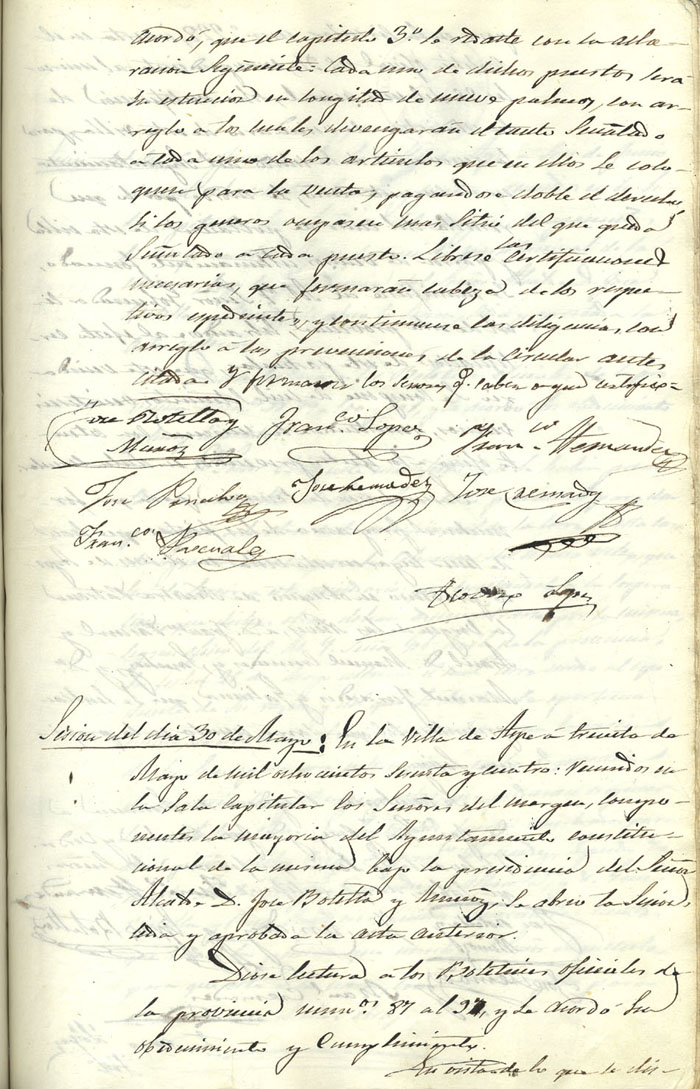 acordó, que el capitulo 3.º se redacte con la acla-
racion siguiente: Cada uno de dichos puestos sera
su estencion en longitud de nueve palmos, con ar-
reglo a los cuales devengarán el tanto señalado
a cada uno de los articulos que en ellos se colo-
quen para la venta, pagandose doble el derecho
si los generos ocupasen mas sitio del que queda
señalado a cada puesto. Librese las certificaciones
necesarias, que formarán cabeza de los respec-
tivos espedientes, y continuense las diligencias, con
arreglo á las prevenciones de la circular antes
citada. Y firmaron los Señores q.e saben de que certifico.=
Jose Botella y
Muñoz
Fran.co Lopez
Fran.co Hernandez
Jose
Jose hernadez
Jose
Fran.co
Lopez
Sesion del dia 30 de Mayo: En la Villa de Aspe a treinta de
Mayo de mil ochocientos sesenta y cuatro: reunidos en
la Sala Capitular los Señores del margen, compo-
nentes la mayoria del Ayuntamiento constitu-
cional de la misma bajo la presidencia del Señor
Alcalde D. Jose Botella y Muñoz, se abrio la Sesion
leida y aprobada la acta anterior.
Diose lectura a los Boletines oficiales de
la provincia num.os 87 al 97, y se acordó su
obedecimiento y cumplimiento.
En vista de lo que se dis-